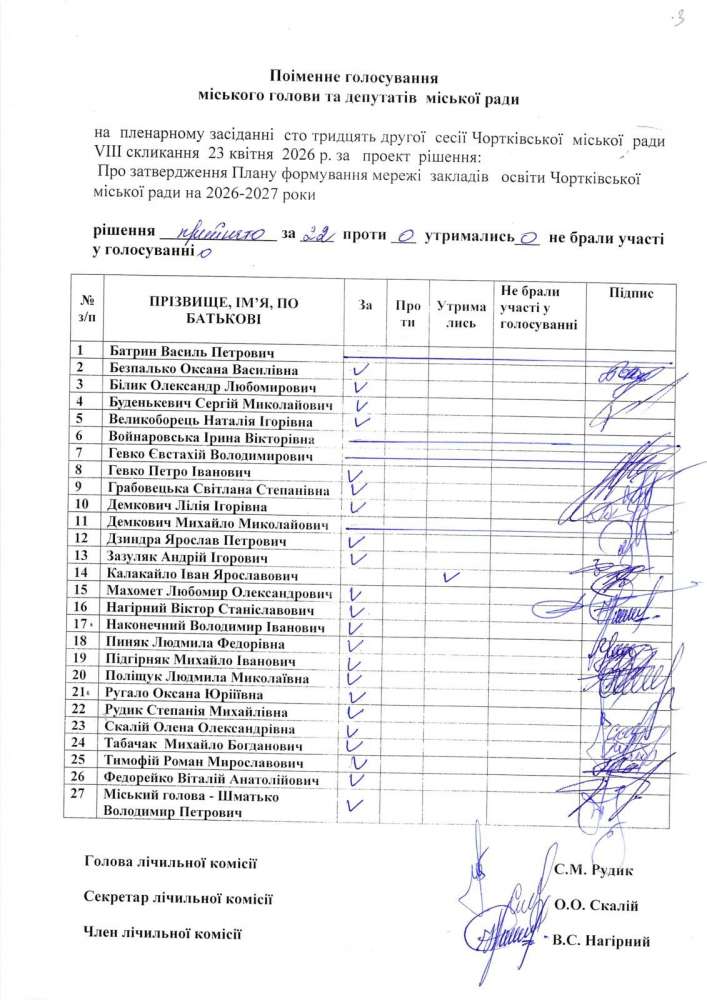 3
Поіменне голосування
міського голови та депутатів міської ради
на пленарному засіданні сто тридцять другої сесії Чортківської міської ради
VIII скликання 23 квітня 2026 р. за проект рішення:
Про затвердження Плану формування мережі закладів освіти Чортківської
міської ради на 2026-2027 роки
рішення прийнято за 22 проти 0 утримались 0 не брали участі
у голосуванні 0
№ з/п ПРІЗВИЩЕ, ІМ’Я, ПО БАТЬКОВІ За Про ти Утрима лись Не брали участі у голосуванні Підпис
1 Батрин Василь Петрович
2 Безпалько Оксана Василівна ✓
3 Білик Олександр Любомирович ✓
4 Буденькевич Сергій Миколайович ✓
5 Великоборець Наталія Ігорівна ✓
6 Войнаровська Ірина Вікторівна
7 Гевко Євстахій Володимирович
8 Гевко Петро Іванович ✓
9 Грабовецька Світлана Степанівна ✓
10 Демкович Лілія Ігорівна ✓
11 Демкович Михайло Миколайович
12 Дзиндра Ярослав Петрович ✓
13 Зазуляк Андрій Ігорович ✓
14 Калакайло Іван Ярославович ✓
15 Махомет Любомир Олександрович ✓
16 Нагірний Віктор Станіславович ✓
17 Наконечний Володимир Іванович ✓
18 Пиняк Людмила Федорівна ✓
19 Підгірняк Михайло Іванович ✓
20 Поліщук Людмила Миколаївна ✓
21 Ругало Оксана Юріїівна ✓
22 Рудик Степанія Михайлівна ✓
23 Скалій Олена Олександрівна ✓
24 Табачак Михайло Богданович ✓
25 Тимофій Роман Мирославович ✓
26 Федорейко Віталій Анатолійович ✓
27 Міський голова - Шматько
Володимир Петрович ✓
Голова лічильної комісії С.М. Рудик
Секретар лічильної комісії О.О. Скалій
Член лічильної комісії В.С. Нагірний